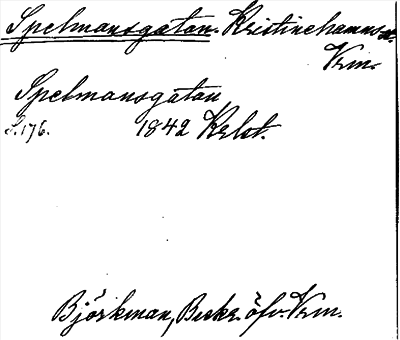 Spelmansgatan. Kristinehamns
Vrm.
Spelmansgatan
S. 176. 1842 Krbt.
Björkman, Beskr. öfv. Vrm.